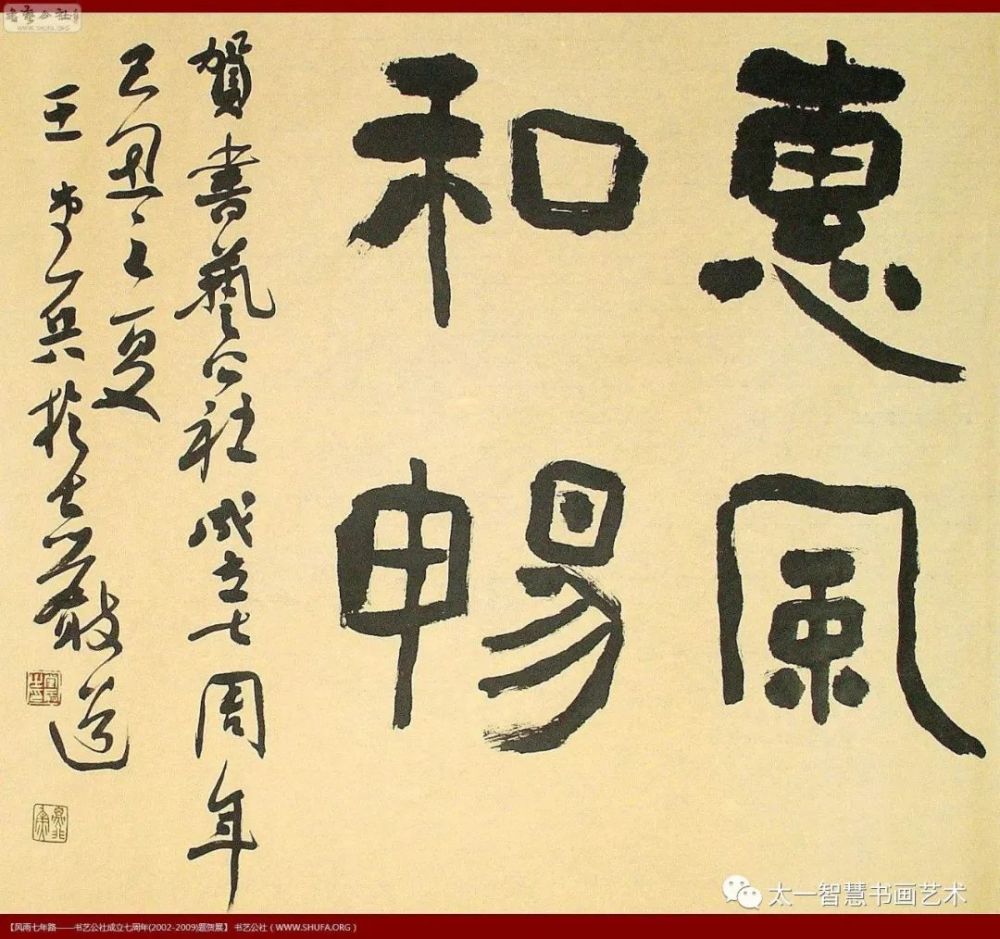 書藝公社
WWW.SHUFA.ORG
惠風
和暢
賀書藝公社成立七周年
己丑之夏
王 兵於古嚴道
太一智慧书画艺术
【风雨七年路——书艺公社成立七周年(2002-2009)题贺展】 书艺公社（WWW.SHUFA.ORG）